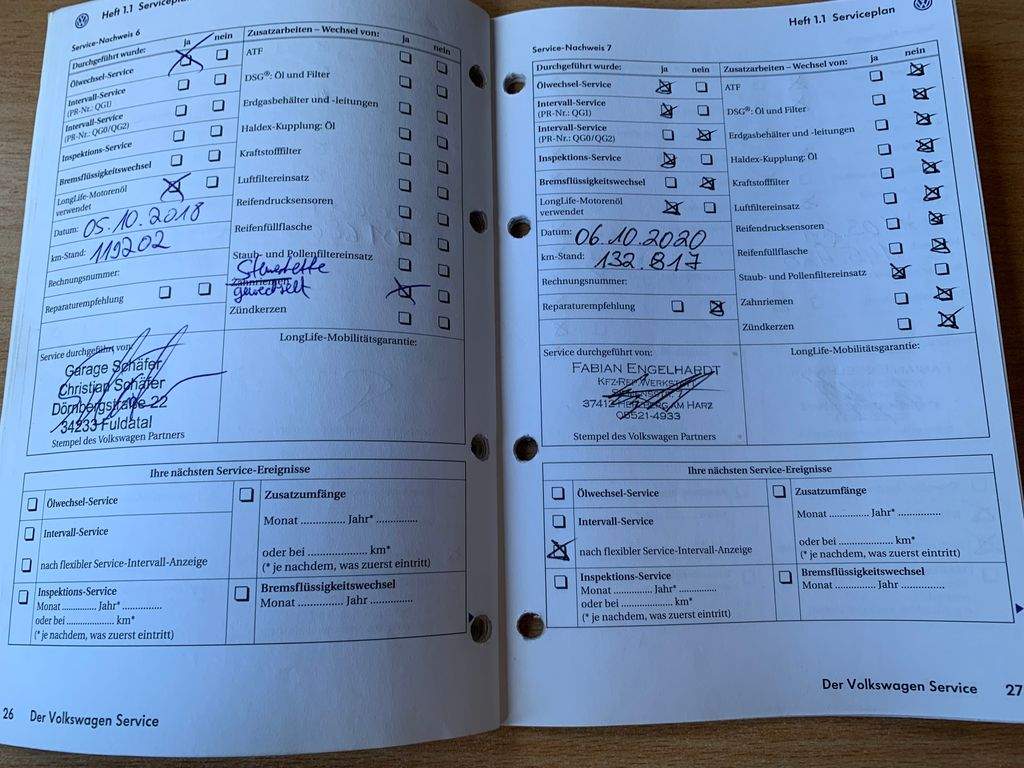 Heft 1.1 Serviceplan
Service-Nachweis 6
Durchgeführt wurde: ja nein
Ölwechsel-Service
Intervall-Service
(PR-Nr.: QG1)
Intervall-Service
(PR-Nr.: QG0/QG2)
Inspektions-Service
Bremsflüssigkeitswechsel
LongLife-Motorenöl
verwendet
Datum: 05.10.2018
km-Stand: 119202
Rechnungsnummer:
Reparaturempfehlung
Zusatzarbeiten – Wechsel von: ja nein
ATF
DSG®: Öl und Filter
Erdgasbehälter und -leitungen
Haldex-Kupplung: Öl
Kraftstofffilter
Luftfiltereinsatz
Reifendrucksensoren
Reifenfüllflasche
Staub- und Pollenfiltereinsatz
Steuerkette
Zahnriemen
gewechselt
Zündkerzen
Service durchgeführt von:
Garage Schäfer
Christian Schäfer
Dörnbergstraße 22
34233 Fuldatal
Stempel des Volkswagen Partners
LongLife-Mobilitätsgarantie:
Ihre nächsten Service-Ereignisse
Ölwechsel-Service
Intervall-Service
nach flexibler Service-Intervall-Anzeige
Inspektions-Service
Monat .............. Jahr* ..............
oder bei .................... km*
(* je nachdem, was zuerst eintritt)
Zusatzumfänge
Monat .............. Jahr* ..............
oder bei .................... km*
(* je nachdem, was zuerst eintritt)
Bremsflüssigkeitswechsel
Monat .............. Jahr ..............
26 Der Volkswagen Service
Heft 1.1 Serviceplan
Service-Nachweis 7
Durchgeführt wurde: ja nein
Ölwechsel-Service
Intervall-Service
(PR-Nr.: QG1)
Intervall-Service
(PR-Nr.: QG0/QG2)
Inspektions-Service
Bremsflüssigkeitswechsel
LongLife-Motorenöl
verwendet
Datum: 06.10.2020
km-Stand: 132.817
Rechnungsnummer:
Reparaturempfehlung
Zusatzarbeiten – Wechsel von: ja nein
ATF
DSG®: Öl und Filter
Erdgasbehälter und -leitungen
Haldex-Kupplung: Öl
Kraftstofffilter
Luftfiltereinsatz
Reifendrucksensoren
Reifenfüllflasche
Staub- und Pollenfiltereinsatz
Zahnriemen
Zündkerzen
Service durchgeführt von:
FABIAN ENGELHARDT
KFZ-REP.WERKSTATT
37412 HERZBERG AM HARZ
05521-4933
Stempel des Volkswagen Partners
LongLife-Mobilitätsgarantie:
Ihre nächsten Service-Ereignisse
Ölwechsel-Service
Intervall-Service
nach flexibler Service-Intervall-Anzeige
Inspektions-Service
Monat .............. Jahr* ..............
oder bei .................... km*
(* je nachdem, was zuerst eintritt)
Zusatzumfänge
Monat .............. Jahr* ..............
oder bei .................... km*
(* je nachdem, was zuerst eintritt)
Bremsflüssigkeitswechsel
Monat .............. Jahr ..............
Der Volkswagen Service 27